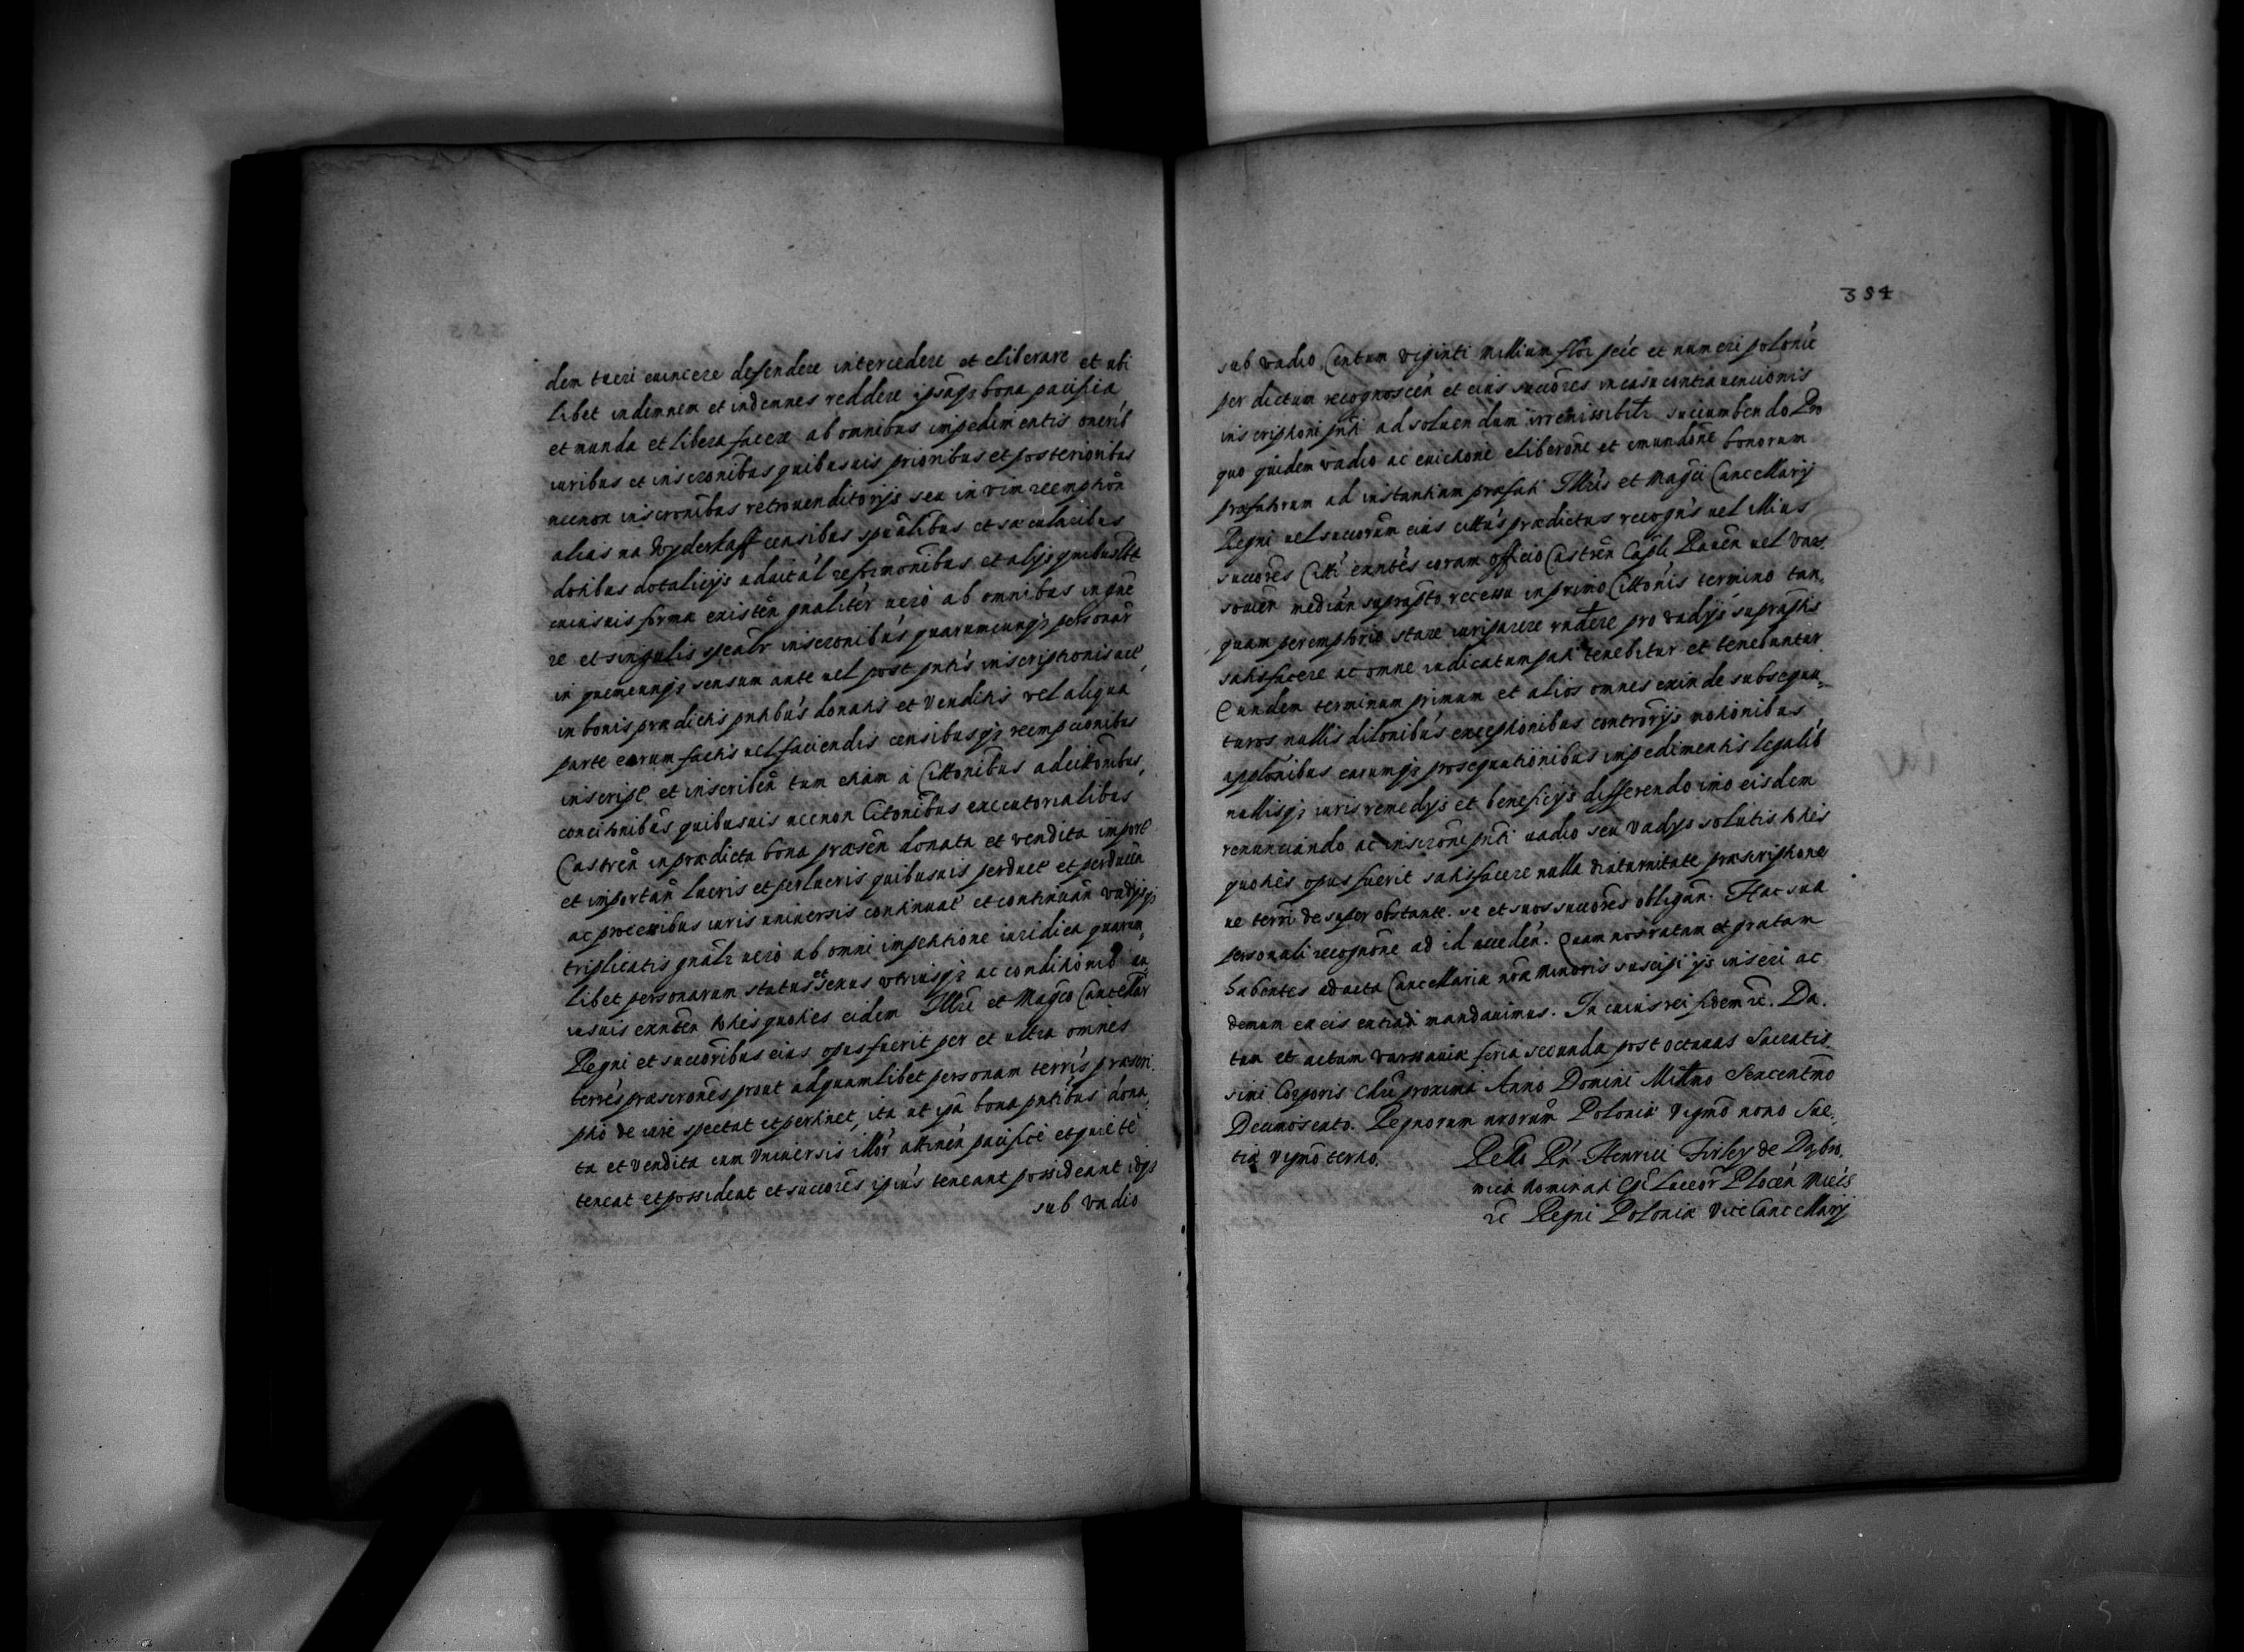 dem tueri euincere defendere intercedere et eliberare et ubi
libet indemnem et indemnes reddere ipsaq3 bona pacifica
et munda et libera facere ab omnibus impedimentis onerib
iuribus et inscronibus quibusuis prioribus et posterioribus
necnon inscronibus retrouenditorijs seu in vim reemption
alias na Wyderkaff censibus spualibus et sæcularibus
dotibus dotalicijs aduital reformonibus et alijs quibuslbt
cuiusuis forma existen gnaliter uero ab omnibus in gne
re et singulis spealr inscronibus quarumcunq3 personar
in quemcunq3 sensum ante uel post pntis inscriptionis
in bonis prædictis pntibus donatis et venditis vel aliqua
parte eorum factis uel faciendis censibusq3 reempcionibus
inscript et inscriben tum etiam à Cittonibus adcittonibus
concitonibus quibusuis necnon Citonibus executorialibus
Castren in prædicta bona præsen donata et vendita import
et importan lucris et perlucris quibusuis perduct et perducen
ac processibus iuris uniuersis continuat et continuan vadijsq3
triplicatis gnalr uero ab omni impetitione iuridica quarum
libet personarum status et sexus vtriusq3 ac conditionib
iusuis exnten toties quoties eidem Illri et Magco Cancellar
Regni et succoribus eius opus fuerit per et ultra omnes
terres præscrones prout ad quamlibet personam terris præscri
ptio de iure spectat et pertinet, ita ut ipa bona pntibus dona
ta et vendita cum Vniuersis illor attinen pacifice et quiete
teneat et possideat et succores ipius teneant possideant idqs
sub vadio
354
sub vadio Centum viginti Millium flor pecc et numeri polonic
per dictum recognoscen et eius succores in casu contrauencionis
inscriptioni pnti ad soluendum irremissibilr succumbendo Pro
quo quidem vadio ac euictione eliberone et emundone bonorum
præfatorum ad instantiam præfati Illris et Magci Cancellarij
Regni uel succorum eius cittus prædictus recogns uel illius
succores Citti exntes coram officio Castren Capli Rauen uel Vars
souien median suprapto recessu in primo Cittonis termino tan
quam peremptorie stare iuri parere rndere pro vadijs supraptis
satisfacere ac omne iudicatum pati tenebitur et tenebuntur
Eundem terminum primum et alios omnes exinde subsequu
turos nullis dilonibus exceptionibus controrijs motionibus
applonibus earumq3 prosequutionibus impedimentis legalib
nullisq3 iuris remedijs et beneficijs differendo imo eisdem
renunciando ac inscroni pnti uadio seu vadijs solutis toties
quoties opus fuerit satisfacere nulla diuturnitate præscriptione
ue terri de super obstante. se et suos succores obligan. Hac sua
personali recognone ad id acceden. Quam nos ratam et gratam
habentes ad acta Cancellariæ nræ Minoris suscipi ijs inseri ac
demum ex eis extradi mandauimus. In cuius rei fidem rc. Da
tum et actum varsauiæ feria secunda post octauas Sacratis
simi Corporis Chri proxima Anno Domini Millmo Sexcentmo
Decimosexto. Regnorum nrorum Poloniæ Vigmo nono Sue
tiæ Vigmo tertio.
Rello Rn Henrici Firley de Dabro
wica Nominati Epi Luceor Plocen Miels
rc Regni Poloniæ ViceCancellarij